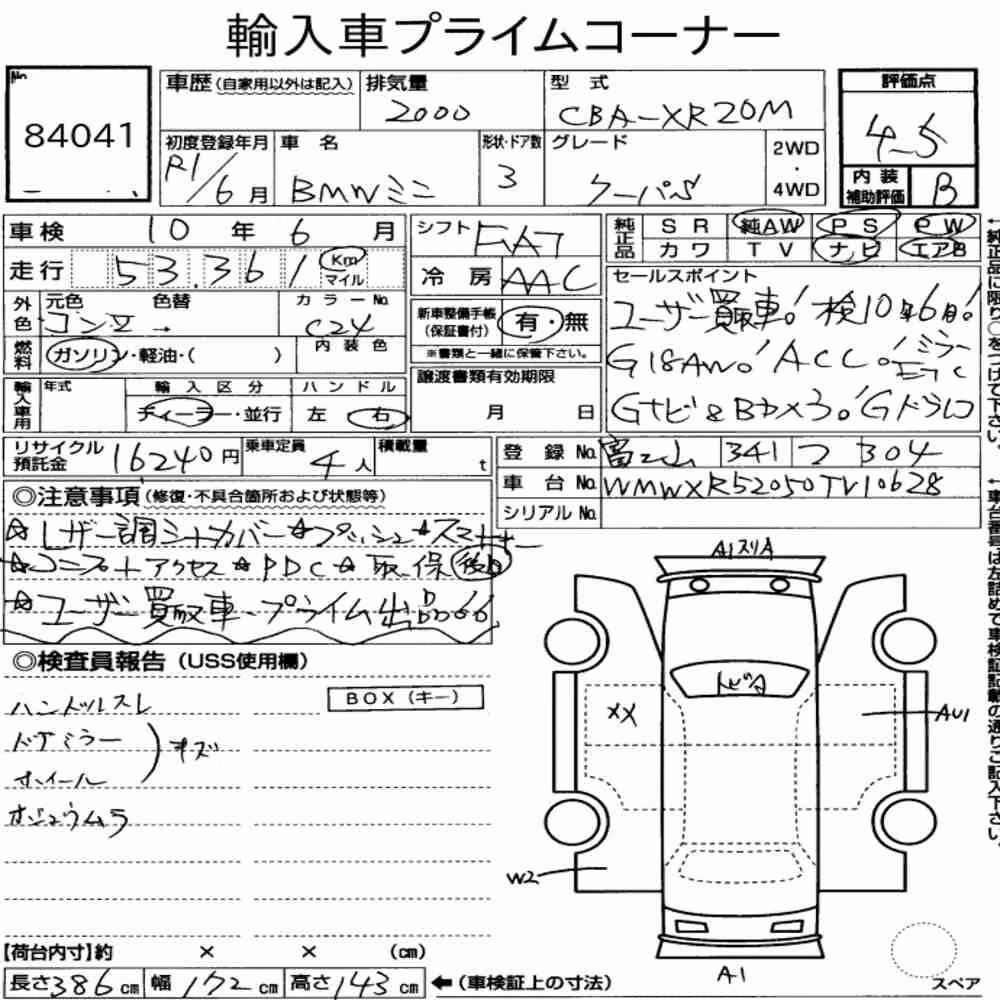 輸入車プライムコーナー
No
84041
車歴(自家用以外は記入)
排気量
2000
型式
CBA-XR20M
評価点
4.5
内装補助評価
B
初度登録年月
R1/6月
車名
BMWミニ
形状・ドア数
3
グレード
クーパーS
2WD
・
4WD
車検 10年 6月
走行 53,361 Km マイル
外色
元色 コンⅡ →
色替
カラーNo.
C24
燃料
ガソリン・軽油・( )
内装色
輸入車用
年式
輸入区分
ディーラー・並行
ハンドル
左 右
シフト FAT
冷房 AAC
新車整備手帳(保証書付)
有・無
※書類と一緒に保管下さい。
譲渡書類有効期限
月 日
純正品
SR 純AW PS PW
カワ TV ナビ エアB
セールスポイント
ユーザー買取車!検10年6月!
G18AW。ACC。ミラーETC
Gナビ&Bカメラ。Gドラレコ
←純正品に限り○をつけて下さい。
リサイクル預託金 16240円
乗車定員 4人
積載量 t
登録No. 富山 341 つ 304
車台No. WMWXR52050TV10628
シリアルNo.
←車台番号は左詰めで車検証記載の通りご記入下さい。
◎注意事項(修復・不具合箇所および状態等)
☆レザー調シートカバー☆プッシュ☆スマートキー
☆コンフォートアクセス☆PDC☆取、保 後日
☆ユーザー買取車・プライム出品0%
◎検査員報告(USS使用欄)
BOX(キー)
ハンドルスレ
ドアミラー
ホイール
キズ
ボシュウムラ
A1スリA
トビA
XX
AU1
W2
A1
スペア
【荷台内寸】約 × × (cm)
長さ386cm 幅172cm 高さ143cm ←(車検証上の寸法)